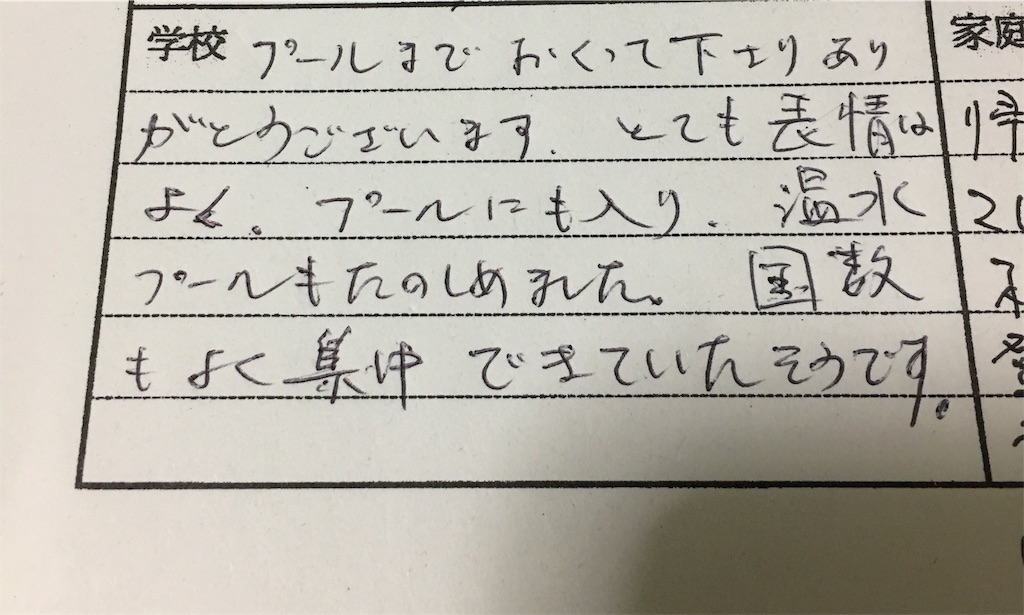 学校 プールまで おくって下さり あり
がとうございます. とても 表情は
よく. プールにも入り. 温水
プールもたのしめました。 国数
も よく 集中 できていたそうです.
家庭